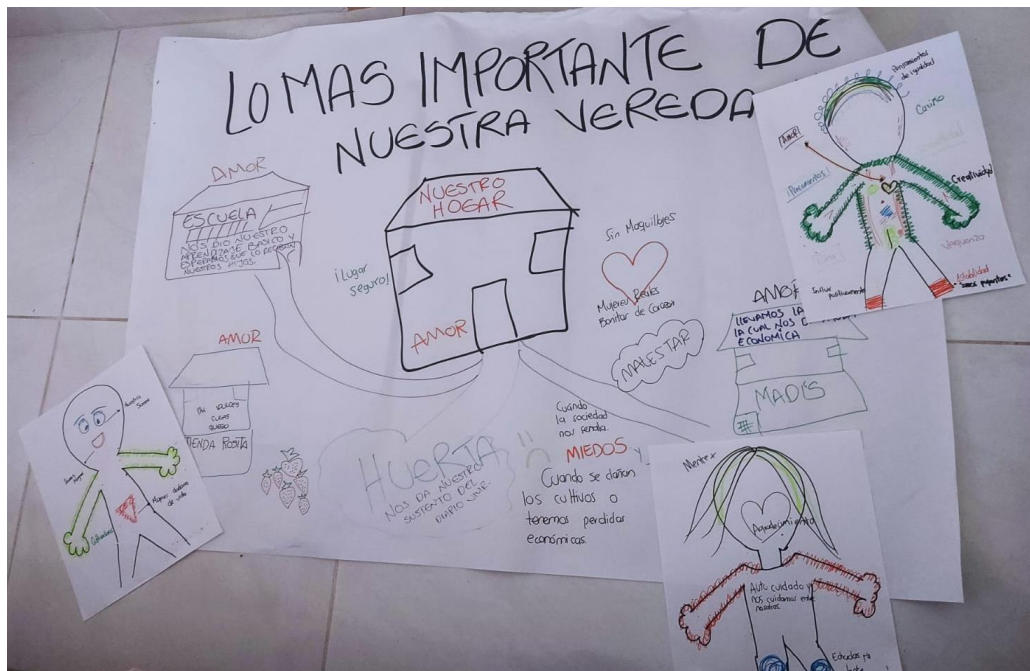 LO MAS IMPORTANTE DE
NUESTRA VEREDA
AMOR
ESCUELA
NOS DIO NUESTRO
APRENDIZAJE BASICO Y
ESPERAMOS QUE LO RECIBAN
NUESTROS HIJOS.
¡Lugar
seguro!
NUESTRO
HOGAR
AMOR
Sin Maquillajes
Mujeres Reales
Bonitas de Corazón
MALESTAR
AMOR
LLEVAMOS LA
LA CUAL NOS
ECONOMICA
MADIS
AMOR
QUESO
TIENDA ROSITA
HUERTA
NOS DA NUESTRO
SUSTENTO DEL
DIARIO VIVIR.
Cuando
la sociedad
nos señala.
MIEDOS y
Cuando se dañan
los cultivos o
tenemos perdidas
económicas.
Pensamientos
de igualdad
Cariño
AMOR
Creatividad
Pensamientos
Verguenza
Influir positivamente
Estabilidad
Nuestros
de vida
Mente
Agradecimiento
Auto cuidado y
nos cuidamos entre
nosotros